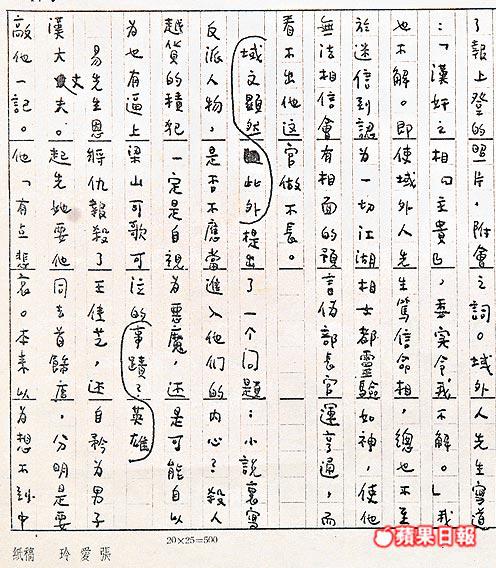 了報上登的照片，附會之詞。域外人先生寫道
：「漢奸之相『主貴』，委實令我不解。」我
也不解。即使域外人先生篤信命相，總也不至
於迷信到認為一切江湖相士都靈驗如神，使他
無法相信會有相面的預言偽部長官運亨通，而
看不出他这官做不長。
域文顯然此外提出了一个问題：小說裏寫
反派人物，是否不應當進入他们的内心？殺人
越貨的積犯一定是自視為惡魔，还是可能自以
為也有逼上梁山可歌可泣的事蹟？英雄
易先生恩將仇報殺了王佳芝，还自矜為男子
漢大丈夫。起先她要他同去首餙店，分明是要
敲他一記。他「有点悲哀。本來以為想不到中
20×25=500
張愛玲 稿紙
蘋果日報